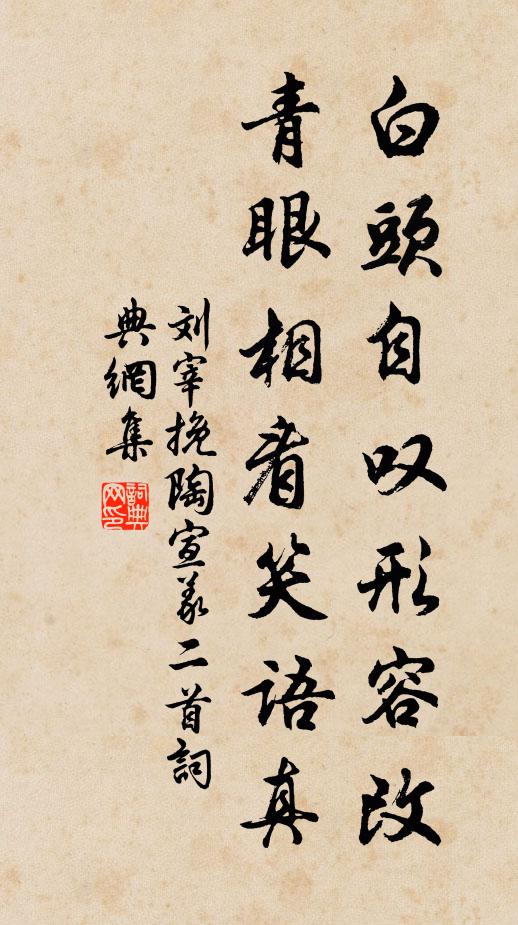 白頭自叹形容改
青眼相看笑語真
刘宰挽陶宣義二首詞
典網集
詞典
网印